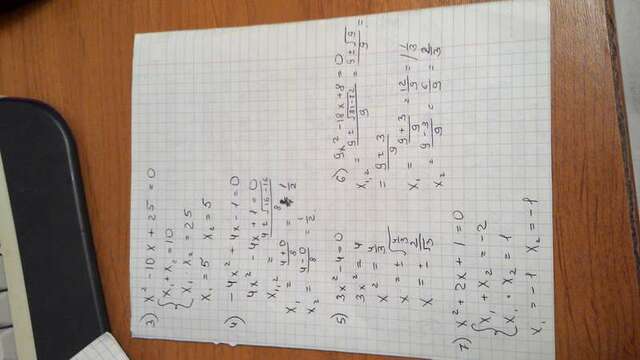 3) x² - 10x + 25 = 0
{ x₁ + x₂ = 10
x₁ · x₂ = 25
x₁ = 5 x₂ = 5
4) -4x² + 4x - 1 = 0
4x² - 4x + 1 = 0
x₁,₂ = (4 ± √(16-16))/8
x₁ = (4+0)/8 = 1/2
x₂ = (4-0)/8 = 1/2
5) 3x² - 4 = 0
3x² = 4
x² = 4/3
x = ± √(4/3)
x = ± 2/√3
6) 9x² - 18x + 8 = 0
x₁,₂ = (9 ± √(81-72))/9 = (9 ± √9)/9 =
= (9 ± 3)/9
x₁ = (9+3)/9 = 12/9 = 1 1/3
x₂ = (9-3)/9 = 6/9 = 2/3
7) x² + 2x + 1 = 0
{ x₁ + x₂ = -2
x₁ · x₂ = 1
x₁ = -1 x₂ = -1